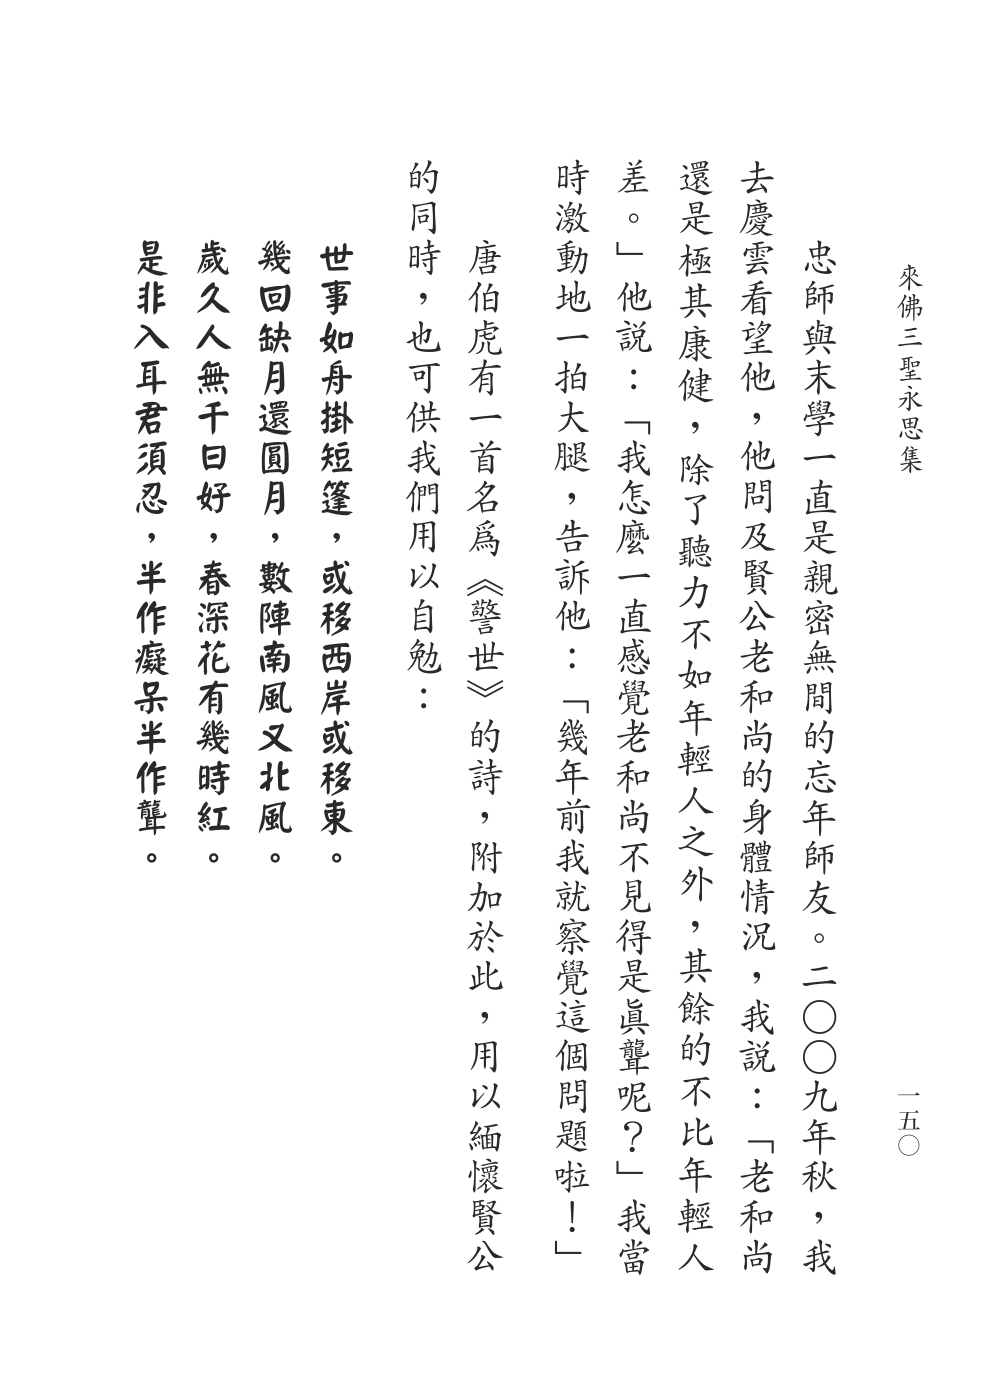 來佛三聖永思集
一五〇
忠師與末學一直是親密無間的忘年師友。二〇〇九年秋，我
去慶雲看望他，他問及賢公老和尚的身體情況，我説：「老和尚
還是極其康健，除了聽力不如年輕人之外，其餘的不比年輕人
差。」他説：「我怎麼一直感覺老和尚不見得是眞聾呢？」我當
時激動地一拍大腿，告訴他：「幾年前我就察覺這個問題啦！」
唐伯虎有一首名爲《警世》的詩，附加於此，用以緬懷賢公
的同時，也可供我們用以自勉：
世事如舟掛短篷，或移西岸或移東。
幾回缺月還圓月，數陣南風又北風。
歲久人無千日好，春深花有幾時紅。
是非入耳君須忍，半作癡呆半作聾。